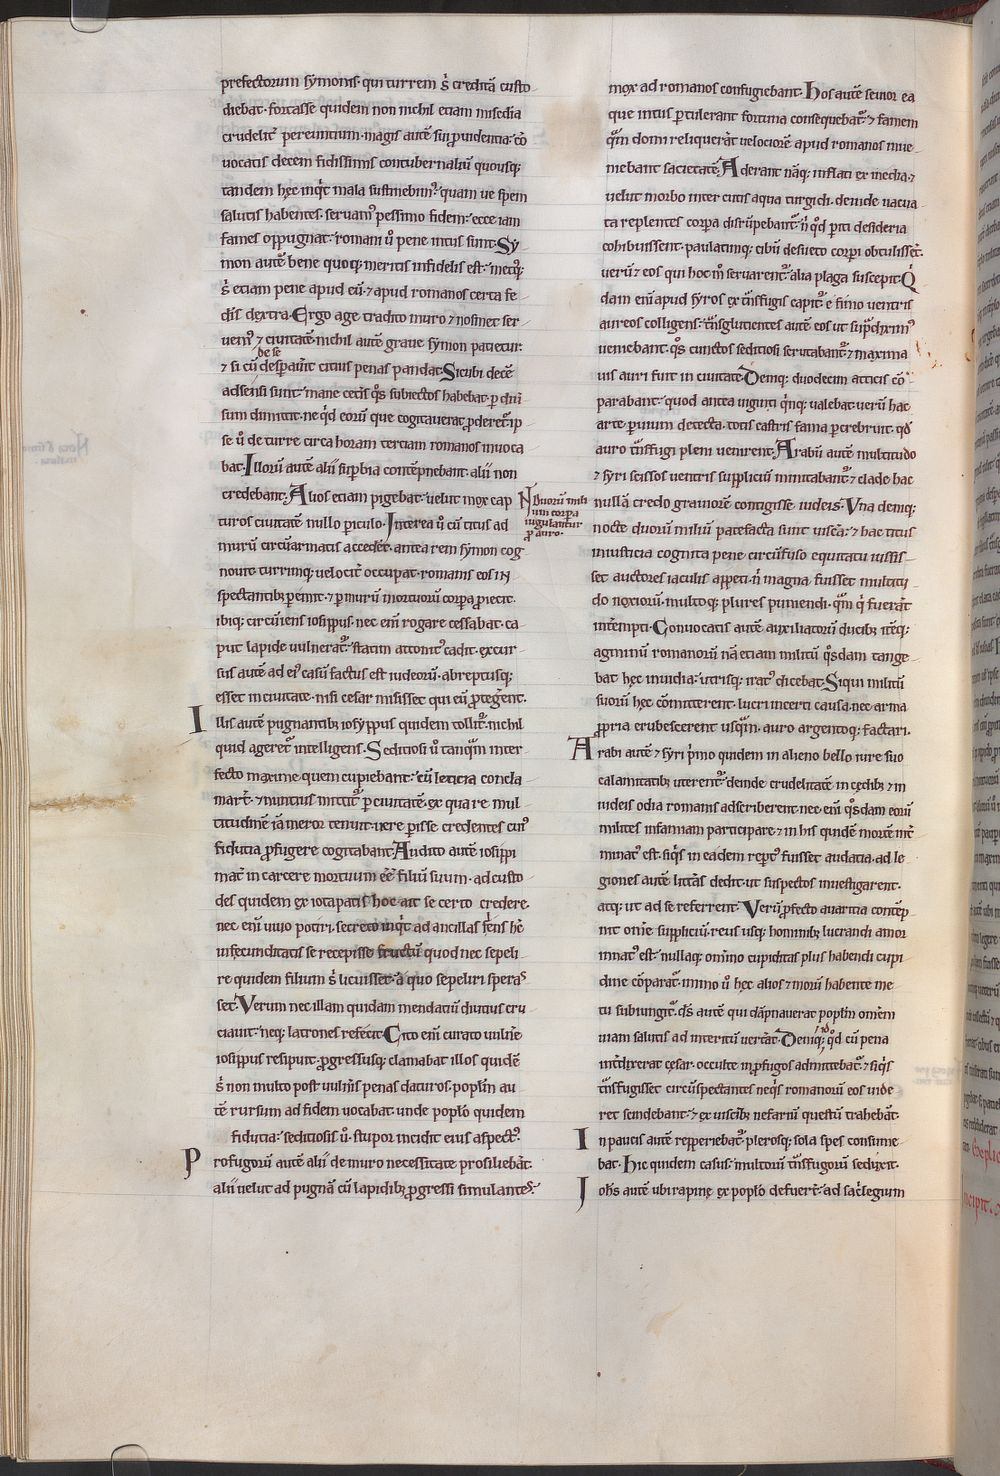 prefectorum symonis· qui turrem s̄ creditā custo
diebat· fortasse quidem non nichil etiam misedia
crudelit̄ pereuntium· magis autē sui puidentia· cō
uocatis decem fidissimis contubernaliū quousq;
tandem hęc inq̇t mala sustinebim᷒? quam ue spem
salutis habentes· seruam᷒ pessimo fidem? ecce iam
fames oppugnat· romani ū pene intus sunt· Sy
mon autē bene quoq; meritis infidelis est· metq;
s̄ etiam pene apud eū· ⁊ apud romanos certa fe
dis dextra· Ergo age tradito muro ⁊ nosmet ser
uem᷒ ⁊ ciuitatē· nichil autē graue symon patietur·
de se
⁊ si cū desperauit citius penas pandat· Sicubi decē
adsensi sunt· mane cet̄is q̊s subiectos habebat p diui
sum dimittit· ne q̇d eorū que cogitauerat, pderet᷒· ip
se ū de turre circa horam tertiam romanos inuoca
bat· Illorū autē alii supbia contēpnebant· alii non
credebant· Alios etiam pigebat· uelut mox cap
turos ciuitatē nullo piculo· Interea ū cū titus ad
murū cū armatis accedēt· antea rem symon cog
nouit· turrimq; uelocit̄ occupat· romanis eos in
spectantib; pemit· ⁊ p murū mortuorū corpa piecit·
ibiq; circūiens iosippus· nec enī rogare cessabat· ca
put lapide uulnerat᷒· statim attonit᷒ cadit· excur
sus autē ad ei᷒ casū factus est iudeorū· abreptusq;
esset in ciuitate· nisi cesar misisset qui eū ptegerent·
Illis autē pugnantib; iosyppus quidem tollit᷒· nichil
quid ageret᷒ intelligens· Seditiosi ū tanq̄m inter
fecto maxime quem cupiebant· cū leticia concla
mart̄· ⁊ nuntius mittit᷒ p ciuitatē· ex qua re mul
titudinē iā meror tenuit· uere pisse credentes cui᷒
fidutia pfugere cogitabant· Audito autē iosippi
mat̄ in carcere mortuum eē filiū suum· ad custo
des quidem ex iotapatis hoc ait se certo credere·
nec enī uiuo potiri· secreto inq̇t ad ancillas flens hc̄
infecunditatis se recepisse fructū quod nec sepeli
re quidem filium s̄ licuisset· a quo sepeliri speras
set· Verum nec illam quidam mendatiū diutius cru
ciauit· neq; latrones refecit· Cito enī curato uulne
iosippus resipuit· pgressusq; clamabat illos quidē
s̄ non multo post uulnis penas daturos· poplm au
tē rursum ad fidem uocabat· unde poplo quidem
fidutia· seditiosis ū stupor incidit eius aspect᷒·
Profugorū autē alii de muro necessitate prosiliebāt·
alii uelut ad pugnā cū lapidib; pgressi simulantes·
N Duorū mili
um corpa
iugulantur
p auro·
mox ad romanos confugiebant· Hos autē seuior ea
que intus ptulerant fortuna consequebat᷒· ⁊ famem
q̄m domi reliquerāt uelociorē apud romanos inue
niebant sacietatē· Aderant nāq; inflati ex inedia· ⁊
uelut morbo inter cutis aqua turgidi· deinde uacua
ta replentes corpa disrūpebant᷒· n̄ q̇d piti desideria
cohibuissent· paulatimq; cibū desueto corpi obtulisset·
uerū ⁊ eos qui hoc m̄ seruarent᷒· alia plaga suscepit· Q̇
dam enī apud syros ex t̄nsfugis capit᷒· e fimo uentris
aureos colligens· t̄nsglutientes autē eos ut sup̄ diximᵒ
ueniebant· q̊s cunctos seditiosi scrutabant᷒· ⁊ maxima
uis auri fuit in ciuitate· Deniq; duodecim atticis cō
parabant· quod antea uiginti q̇nq; ualebat· uerū hac
arte p unum detecta· totis castris fama percrebruit· qd̄
auro t̄nsfugi pleni uenirent· Arabū autē multitudo
⁊ syri sessos uentris suppliciū minitabant᷒· ⁊ clade hac
nullā credo grauiorē contigisse iudeis· Vna deniq;
nocte duorū miliū patefacta sunt uiscā· ⁊ hac titus
iniusticia cognita pene circūfuso equitatu iussis
set auctores iaculis appeti· n̄ magna fuisset multitu
do noxiorū· multoq; plures puniendi· q̄m q̇ fuerāt
int̄empti· Conuocatis autē auxiliatorū ducib; itēq;
agminū romanorū nā etiam militū q̊sdam tange
bat hęc inuidia· utrisq; irat᷒ dicebat· Siqui militū
suorū hęc cōmitterent· lucri incerti causa· nec arma
ppria erubescerent usq̄m· auro argentoq; factari·
Arabi autē ⁊ syri p̄mo quidem in alieno bello iure suo
calamitatib; uterent᷒· deinde crudelitatē in cędib; ⁊ in
iudeis odia romanis adscriberent· nec enī q̊sdam eorū
milites infamiam participare· ⁊ in his quidē mortē int̄
minat᷒ est· siq̇s in eadem rept᷒ fuisset audatia· ad le
giones autē litt̄as dedit· ut suspectos inuestigarent·
atq; ut ad se referrent· Verū pfecto auaritia contēp
nit omne suppliciū· reus usq; hominib; lucrandi amor
innat᷒ est· nullaq; omīno cupiditas plus habendi cupi
dine cōparat᷒· immo ū hęc alios ⁊ morū habente me
tu subiungit᷒· ds̄ autē qui dāpnauerat poplm omēm
uiam salutis ad interitū uertāt· Deniq; id q̇d cū pena
int̄dixerat cesar· occulte in pfugos admittebat᷒· ⁊ siq̇s
t̄nsfugisset circūspectantes neq̇s romanorū eos uide
ret scindebant· ⁊ ex uiscib; nefariū questū trahebāt·
In paucis autē repperiebat᷒· plerosq; sola spes consume
bat· Hic quidem casus· multorū t̄nsfugorū seduxit·
Johs autē ubi rapinę ex poplo defuerē· ad sac̄legium